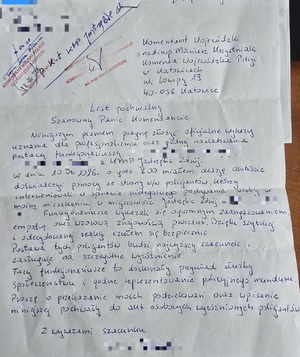 Komendant Wojewódzki
nadinsp. Mariusz Krzystyniak
Komenda Wojewódzka Policji
w Katowicach
ul. Lompy 19
40-038 Katowice
List pochwalny
Szanowny Panie Komendancie
Niniejszym pismem pragnę złożyć oficjalne wyrazy
uznania dla profesjonalizmu oraz godną naśladowania
postawę funkcjonariuszy
z KMP Jastrzębie Zdrój.
w dniu o godz. 8.00 miałem okazję osobiście
doświadczyć pomocy ze strony w/w policjantów, którzy
interweniowali w sprawie
moim mieszkaniu w miejscowości Jastrzębie Zdrój
Funkcjonariusze wykazali się ogromnym zaangażowaniem,
empatią oraz wzorową znajomością procedur. Dzięki szybkiej
i zdecydowanej reakcji czułem się bezpiecznie.
Postawa tych policjantów budzi najwyższy szacunek i
zasługuje na szczególne wyróżnienie.
Tacy funkcjonariusze to doskonały przykład służby
społeczeństwu i godne reprezentowanie policyjnego munduru.
Proszę o przekazanie moich podziękowań oraz wpisanie
niniejszej pochwały do akt osobowych wyróżnionych policjantów.
Z wyrazami szacunku